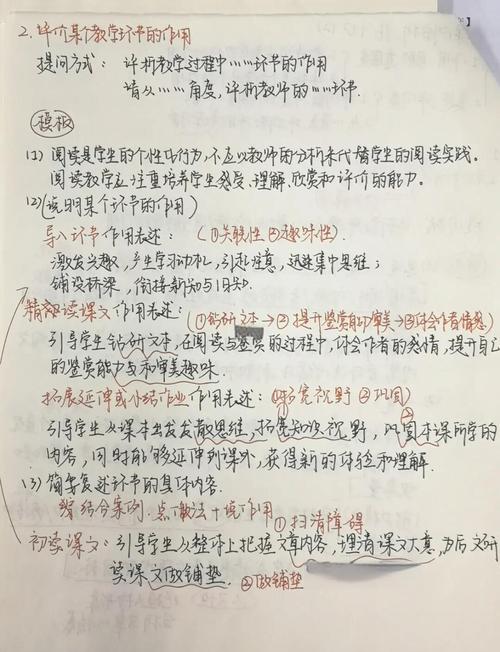 2. 评价某个教学环节的作用
提问方式: 评析教学过程中……环节的作用
请从……角度,评析教师的……环节.
模板
(1) 阅读是学生的个性化行为,不应以教师的分析来代替学生的阅读实践。
阅读教学应注重培养学生感受、理解、欣赏和评价的能力。
(2)(说明某个环节的作用)
导入环节作用表述: (①关联性 ②趣味性).
激发兴趣,产生学习动机,引起注意,迅速集中思维;
铺设桥梁,衔接新知与旧知.
精读课文作用表述: (①钻研文本→②提升鉴赏能力审美→③体会作者情感)
引导学生钻研文本,在阅读与鉴赏的过程中,体会作者的感情,提升自己
的鉴赏能力和审美趣味
拓展延伸或小结作业作用表述: ①拓宽视野 ②巩固
引导学生从课本出发发散思维,拓宽知识视野,巩固本课所学的
内容,同时能够延伸到课外,获得新的体验和理解.
(3) 简要复述环节的具体内容.
结合案例.点教法+说作用
①扫清障碍
初读课文: 引导学生从整体上把握文章内容,理清课文大意,为后文研
读课文做铺垫. ②做铺垫